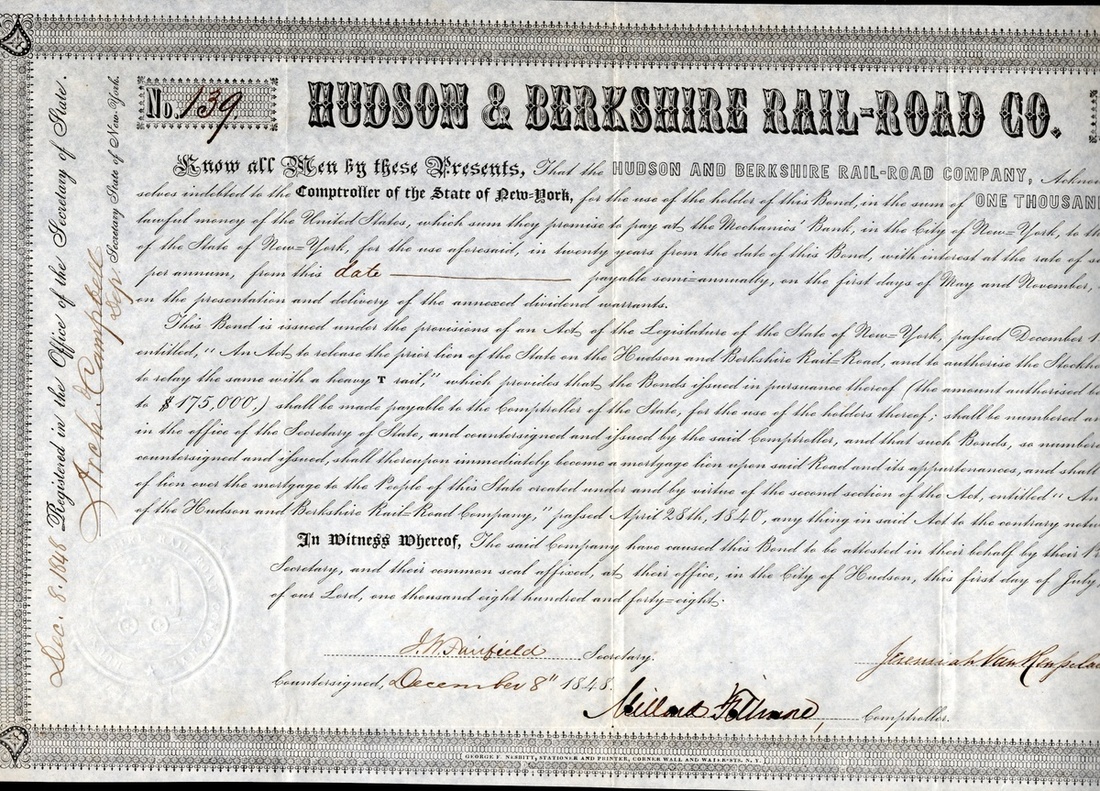 No. 139
HUDSON & BERKSHIRE RAIL-ROAD CO.
Know all Men by these Presents, That the HUDSON AND BERKSHIRE RAIL-ROAD COMPANY, Acknow
selves indebted to the Comptroller of the State of New=York, for the use of the holder of this Bond, in the sum of ONE THOUSAN
lawful money of the United States, which sum they promise to pay at the Mechanics' Bank, in the City of New=York, to th
of the State of New=York, for the use aforesaid, in twenty years from the date of this Bond, with interest at the rate of s
per annum, from this date payable semi=annually, on the first days of May and November,
on the presentation and delivery of the annexed dividend warrants.
This Bond is issued under the provisions of an Act of the Legislature of the State of New=York, passed December 1
entitled, "An Act to release the prior lien of the State on the Hudson and Berkshire Rail=Road, and to authorise the Stockho
to relay the same with a heavy T rail," which provides that the Bonds issued in pursuance thereof (the amount authorised b
to $175,000,) shall be made payable to the Comptroller of the State, for the use of the holders thereof; shall be numbered a
in the office of the Secretary of State, and countersigned and issued by the said Comptroller, and that such Bonds, so number
countersigned and issued, shall thereupon immediately become a mortgage lien upon said Road and its appurtenances, and shall
of lien over the mortgage to the People of this State created under and by virtue of the second section of the Act, entitled "An
of the Hudson and Berkshire Rail=Road Company," passed April 28th, 1840, any thing in said Act to the contrary notw
In Witness Whereof, The said Company have caused this Bond to be attested in their behalf by their
Secretary, and their common seal affixed, at their office, in the City of Hudson, this first day of July,
of our Lord, one thousand eight hundred and forty=eight.
J. W. Fairfield Secretary.
Jeremiah Van Rensselae
Countersigned, December 8" 1848.
Millard Fillmore, Comptroller.
GEORGE F. NESBITT, STATIONER AND PRINTER, CORNER WALL AND WATER STS. N. Y.
Dec. 8. 1848 Registered in the Office of the Secretary of State.
Arch. Campbell
Dep. Secretary State of New-York.